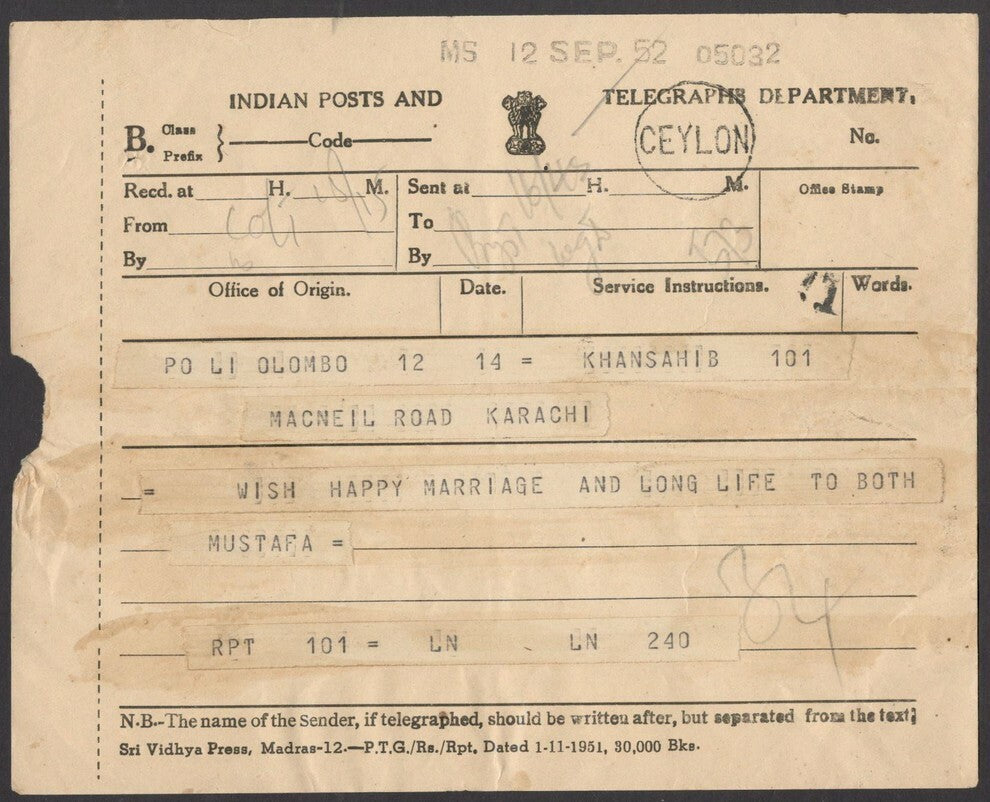 MS 12 SEP. 52 05032
INDIAN POSTS AND TELEGRAPHS DEPARTMENT.
CEYLON
B. Class Prefix } Code No.
Recd. at H. M. Sent at H. M. Office Stamp
From To
By By
Office of Origin. Date. Service Instructions. Words.
PO LI OLOMBO 12 14 = KHANSAHIB 101
MACNEIL ROAD KARACHI
= WISH HAPPY MARRIAGE AND LONG LIFE TO BOTH
MUSTAFA =
34
RPT 101 = LN LN 240
N.B.-The name of the Sender, if telegraphed, should be written after, but separated from the text;
Sri Vidhya Press, Madras-12.—P.T.G./Rs./Rpt. Dated 1-11-1951, 30,000 Bks.